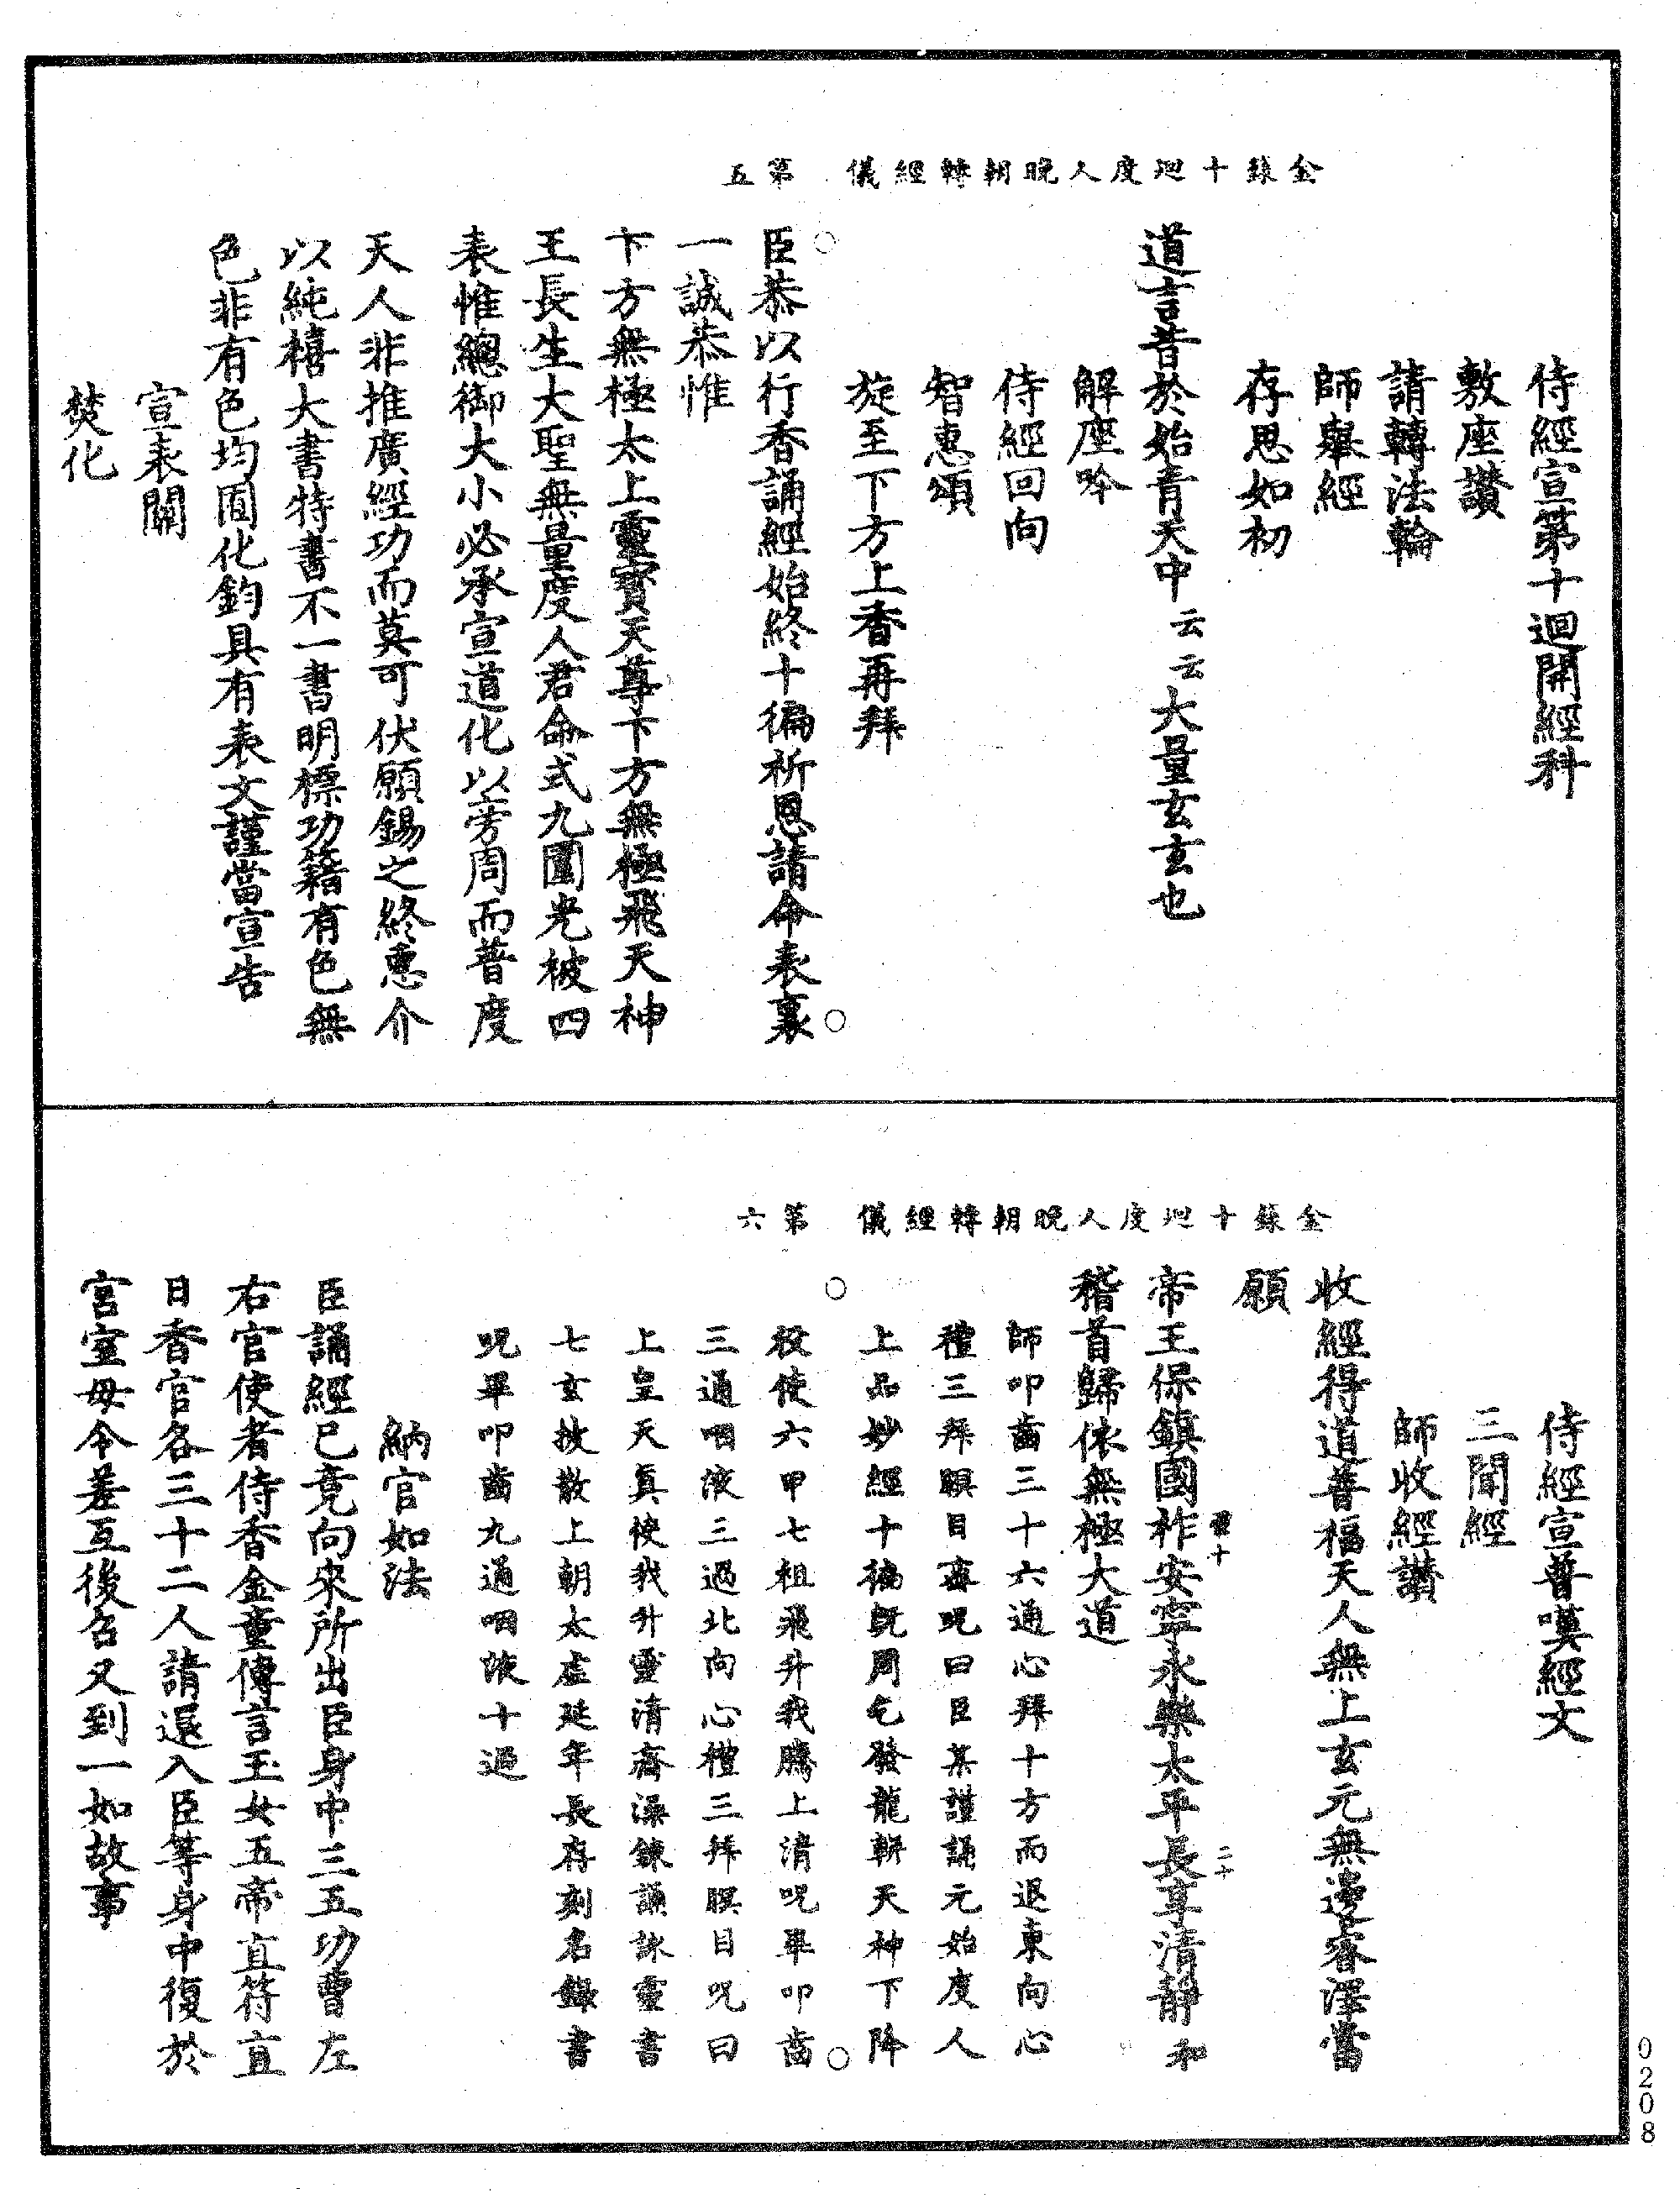 金籙十迴度人晚朝轉經儀　第五
侍經宣第十迴開經科
敷座讚
請轉法輪
師舉經
存思如初
道言昔於始青天中云云大量玄玄也
解座吟
侍經回向
智惠頌
旋至下方上香再拜
臣恭以行香誦經始終十徧祈恩請命表裏
一誠恭惟
下方無極太上靈寶天尊下方無極飛天神
王長生大聖無量度人君命式九圍光被四
表惟總御大小必承宣道化以旁周而普度
天人非推廣經功而莫可伏願錫之終惠介
以純禧大書特書不一書明標功籍有色無
色非有色均囿化鈞具有表文謹當宣告
宣表關
焚化
金籙十迴度人晚朝轉經儀　第六
侍經宣普嘆經文
三聞經
師收經讚
收經得道普福天人無上玄元無邊睿澤當
願
帝王保鎮國祚安寧永樂太平長享清靜和
稽首歸依無極大道
師叩齒三十六通心拜十方而退東向心
禮三拜瞑目密呪曰臣某謹誦元始度人
上品妙經十徧既周乞發龍輧天神下降
役使六甲七祖飛升我騰上清呪畢叩齒
三通咽液三過北向心禮三拜瞑目呪曰
上皇天真使我升靈清齋澡鍊誦詠靈書
七玄披散上朝太虛延年長存刻名錄書
呪畢叩齒九通咽液十過
納官如法
臣誦經已竟向來所出臣身中三五功曹左
右官使者侍香金童傳言玉女五帝直符直
日香官各三十二人請還入臣等身中復於
宮室毋令差互後召又到一如故事
0208